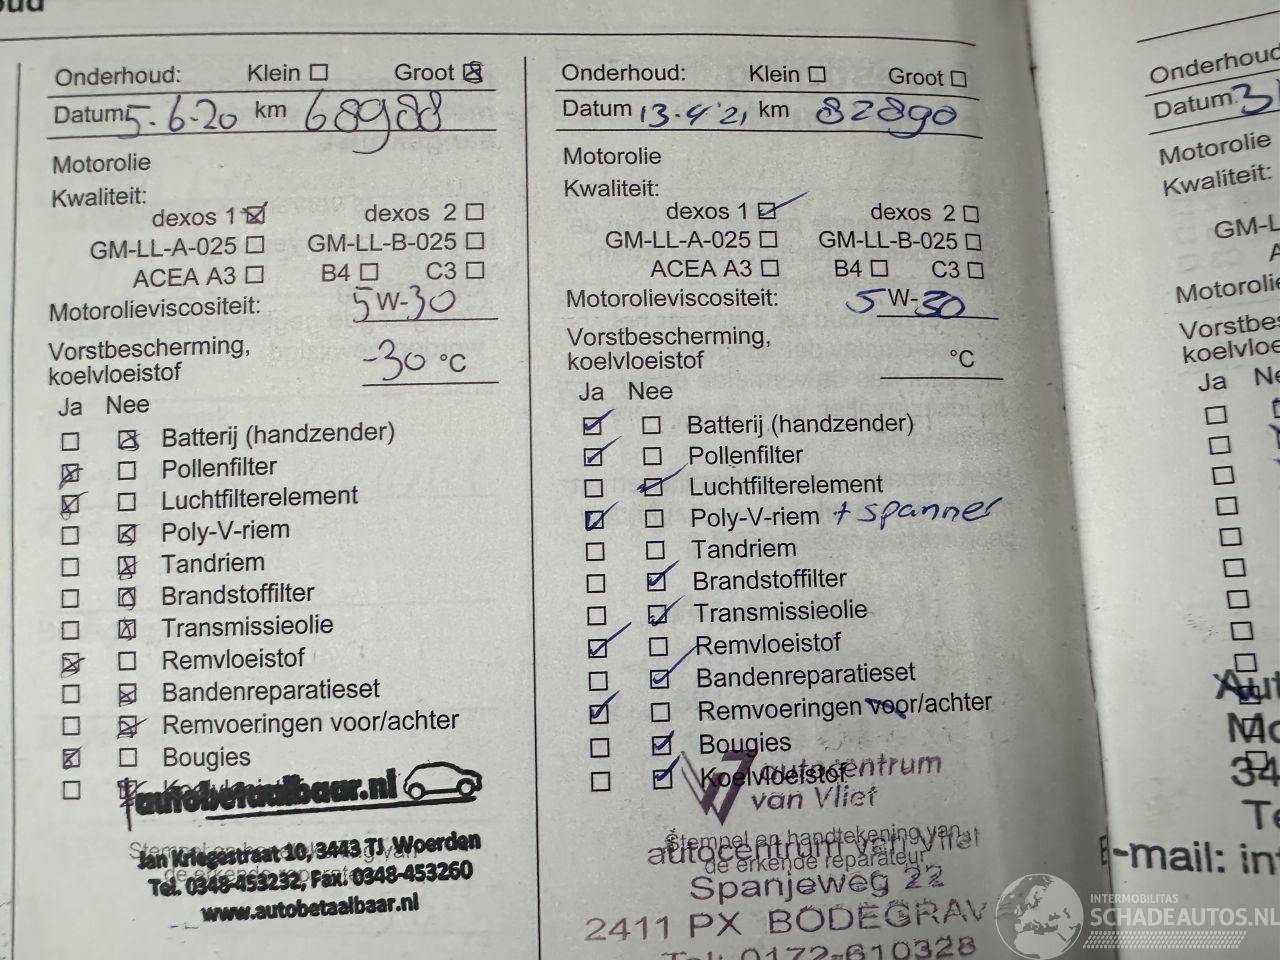 Onderhoud: Klein Groot
Datum 5-6-20 km 68988
Motorolie
Kwaliteit:
dexos 1 dexos 2
GM-LL-A-025 GM-LL-B-025
ACEA A3 B4 C3
Motorolieviscositeit: 5W-30
Vorstbescherming,
koelvloeistof -30 °C
Ja Nee
Batterij (handzender)
Pollenfilter
Luchtfilterelement
Poly-V-riem
Tandriem
Brandstoffilter
Transmissieolie
Remvloeistof
Bandenreparatieset
Remvoeringen voor/achter
Bougies
Koelvloeistof
autobetaalbaar.nl
Stempel en handtekening van
de erkende reparateur
Jan Kriegestraat 10, 3443 TJ Woerden
Tel. 0348-453232, Fax. 0348-453260
www.autobetaalbaar.nl
Onderhoud: Klein Groot
Datum 13-4'21 km 82890
Motorolie
Kwaliteit:
dexos 1 dexos 2
GM-LL-A-025 GM-LL-B-025
ACEA A3 B4 C3
Motorolieviscositeit: 5W-30
Vorstbescherming,
koelvloeistof °C
Ja Nee
Batterij (handzender)
Pollenfilter
Luchtfilterelement
Poly-V-riem + spanner
Tandriem
Brandstoffilter
Transmissieolie
Remvloeistof
Bandenreparatieset
Remvoeringen voor/achter
Bougies
Koelvloeistof
autocentrum
van Vliet
Stempel en handtekening van
de erkende reparateur
autocentrum van Vliet
Spanjeweg 22
2411 PX BODEGRAV
Tel: 0172-610328
Onderhoud
Datum
Motorolie
Kwaliteit:
GM-L
Motorolie
Vorstbes
koelvloe
Ja Ne
Aut
Mo
34
Te
E-mail: inf
INTERMOBILITAS
SCHADEAUTOS.NL